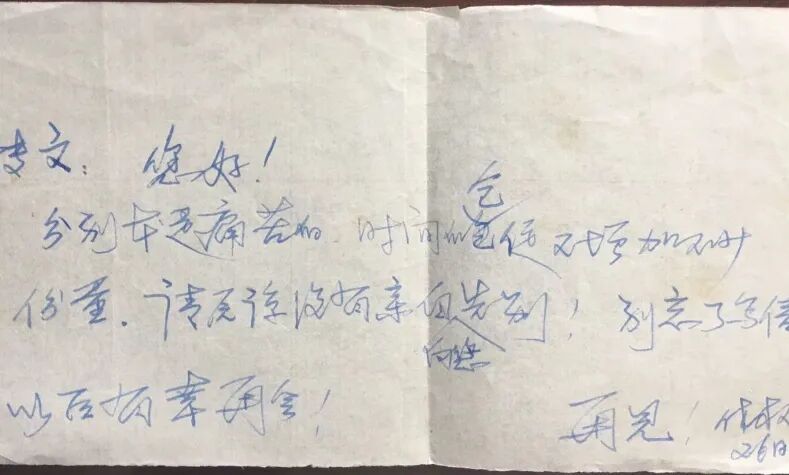 文：您好！
分别本是痛苦的，时间的仓促又增加不少
份量，请原谅没有亲自向您告别！别忘了写信
以后有幸再会！
再见！
26日